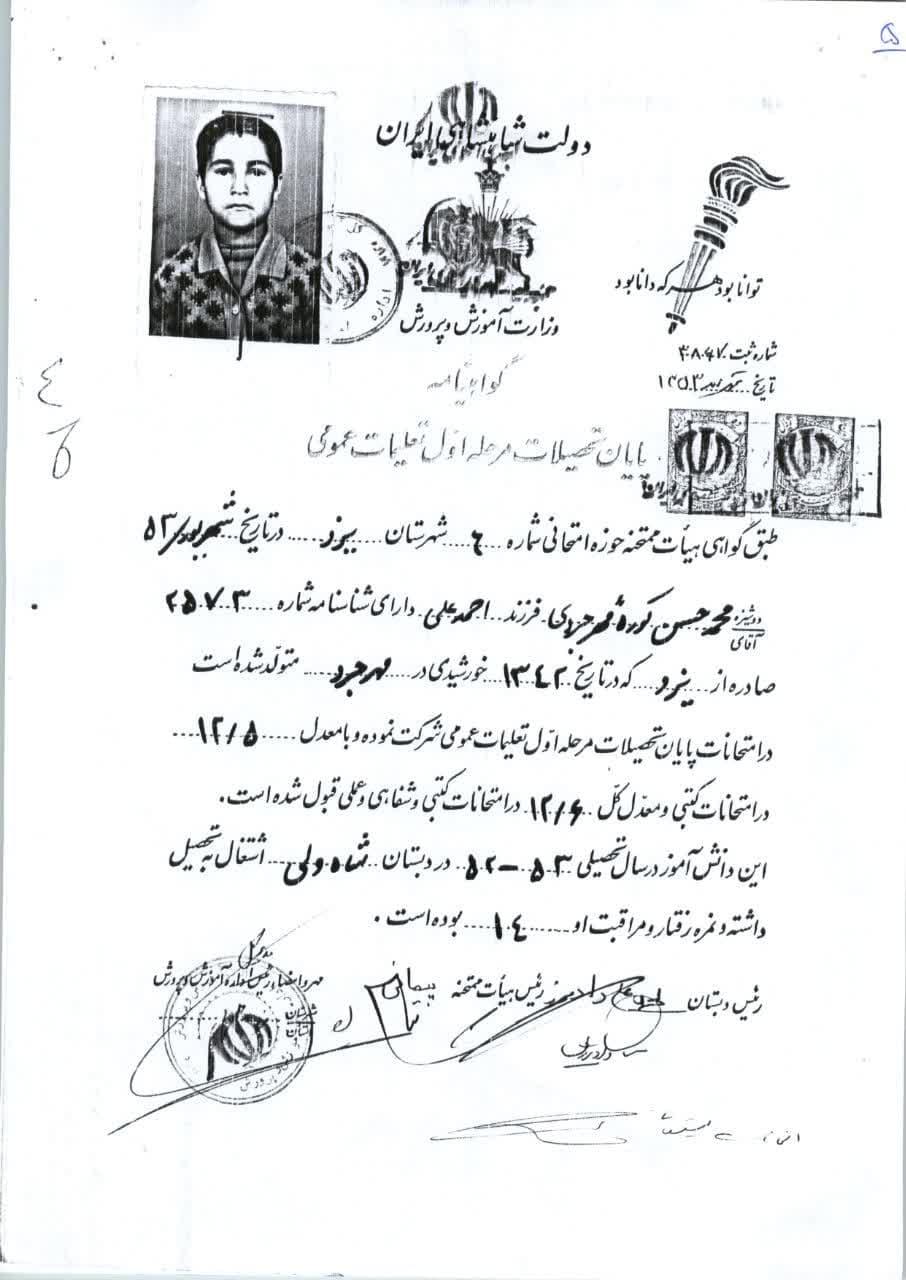 ۵
دولت شاهنشاهی ایران
وزارت آموزش و پرورش
توانا بود هر که دانا بود
شماره ثبت ۴۰۸۴۷
تاریخ ۱۳۵۳
گواهینامه
پایان تحصیلات مرحله اول تعلیمات عمومی
طبق گواهی هیأت ممتحنه حوزه امتحانی شماره ۶ شهرستان یزد در تاریخ شهریور ۵۳
دوشیزه
آقای
محمد حسن فرزند احمد علی دارای شناسنامه شماره ۲۵۷۰۳
صادره از یزد که در تاریخ ۱۳۴۲ خورشیدی در مهرجرد متولد شده است
در امتحانات پایان تحصیلات مرحله اول تعلیمات عمومی شرکت نموده و با معدل ۱۲/۵
در امتحانات کتبی و معدل کل ۱۲/۶ در امتحانات کتبی و شفاهی و عملی قبول شده است.
این دانش آموز در سال تحصیلی ۵۳-۵۲ در دبستان شاه ولی اشتغال به تحصیل
داشته و نمره رفتار و مراقبت او ۱۴ بوده است.
رئیس دبستان رئیس هیأت ممتحنه
مهر و امضاء رئیس اداره آموزش و پرورش
شهرستان